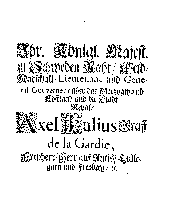 Ihr. Königl. Majest.
zu Schweden Raht, Feld-
Marschall-Lieutenant und Gene-
ral Gouverneur über das Hertzogthumb
Ehstland und die Stadt
Reval
Axel Julius Graff
de la Gardie,
Freyherr, Herr auf
und